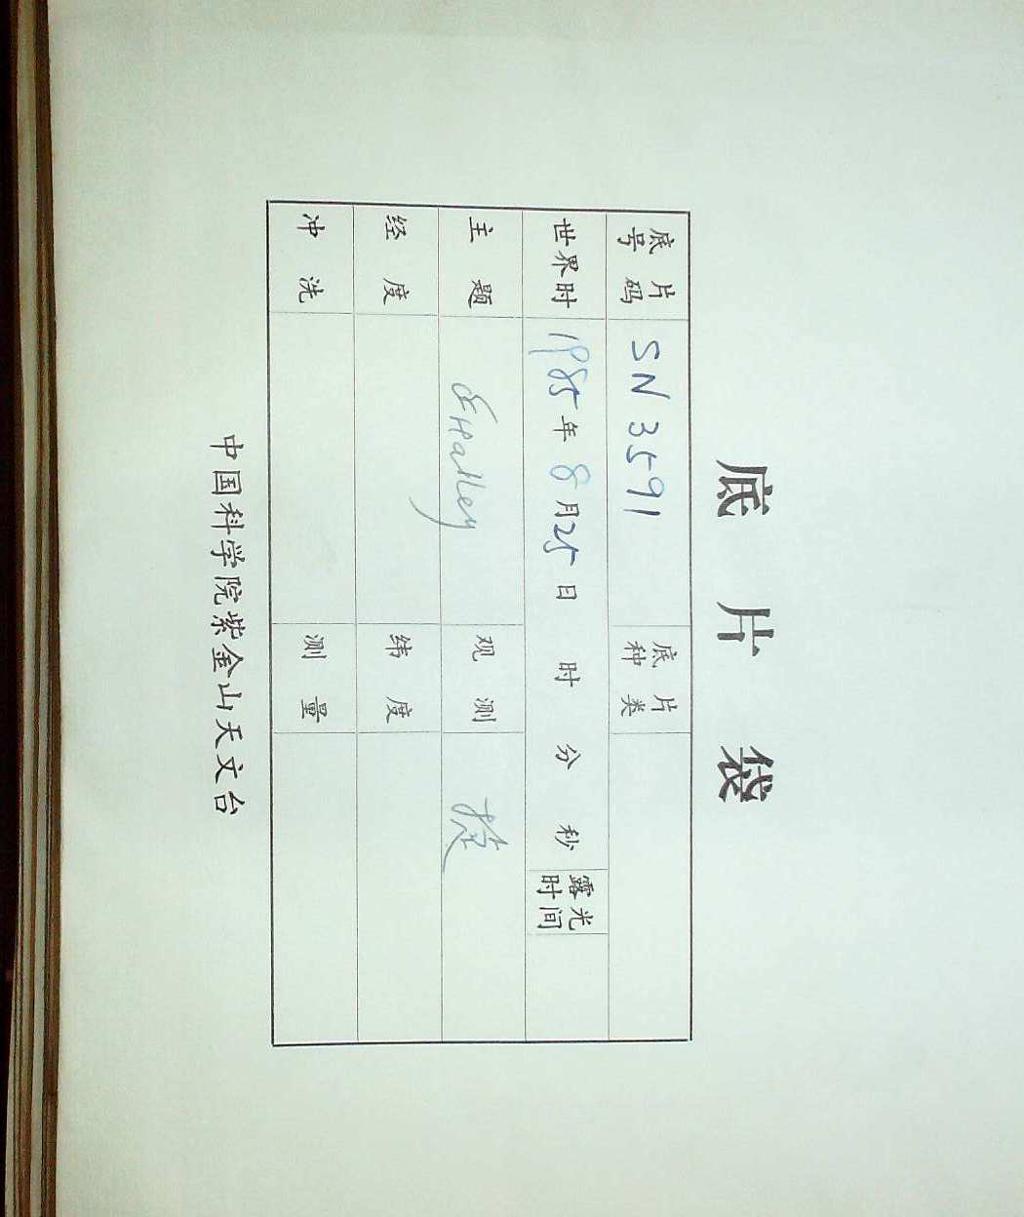 底片袋
底片号码 SN3591 底片种类
世界时 1985年8月25日 时 分 秒 露光时间
主题 Halley 观测
经度 纬度
冲洗 测量
中国科学院紫金山天文台